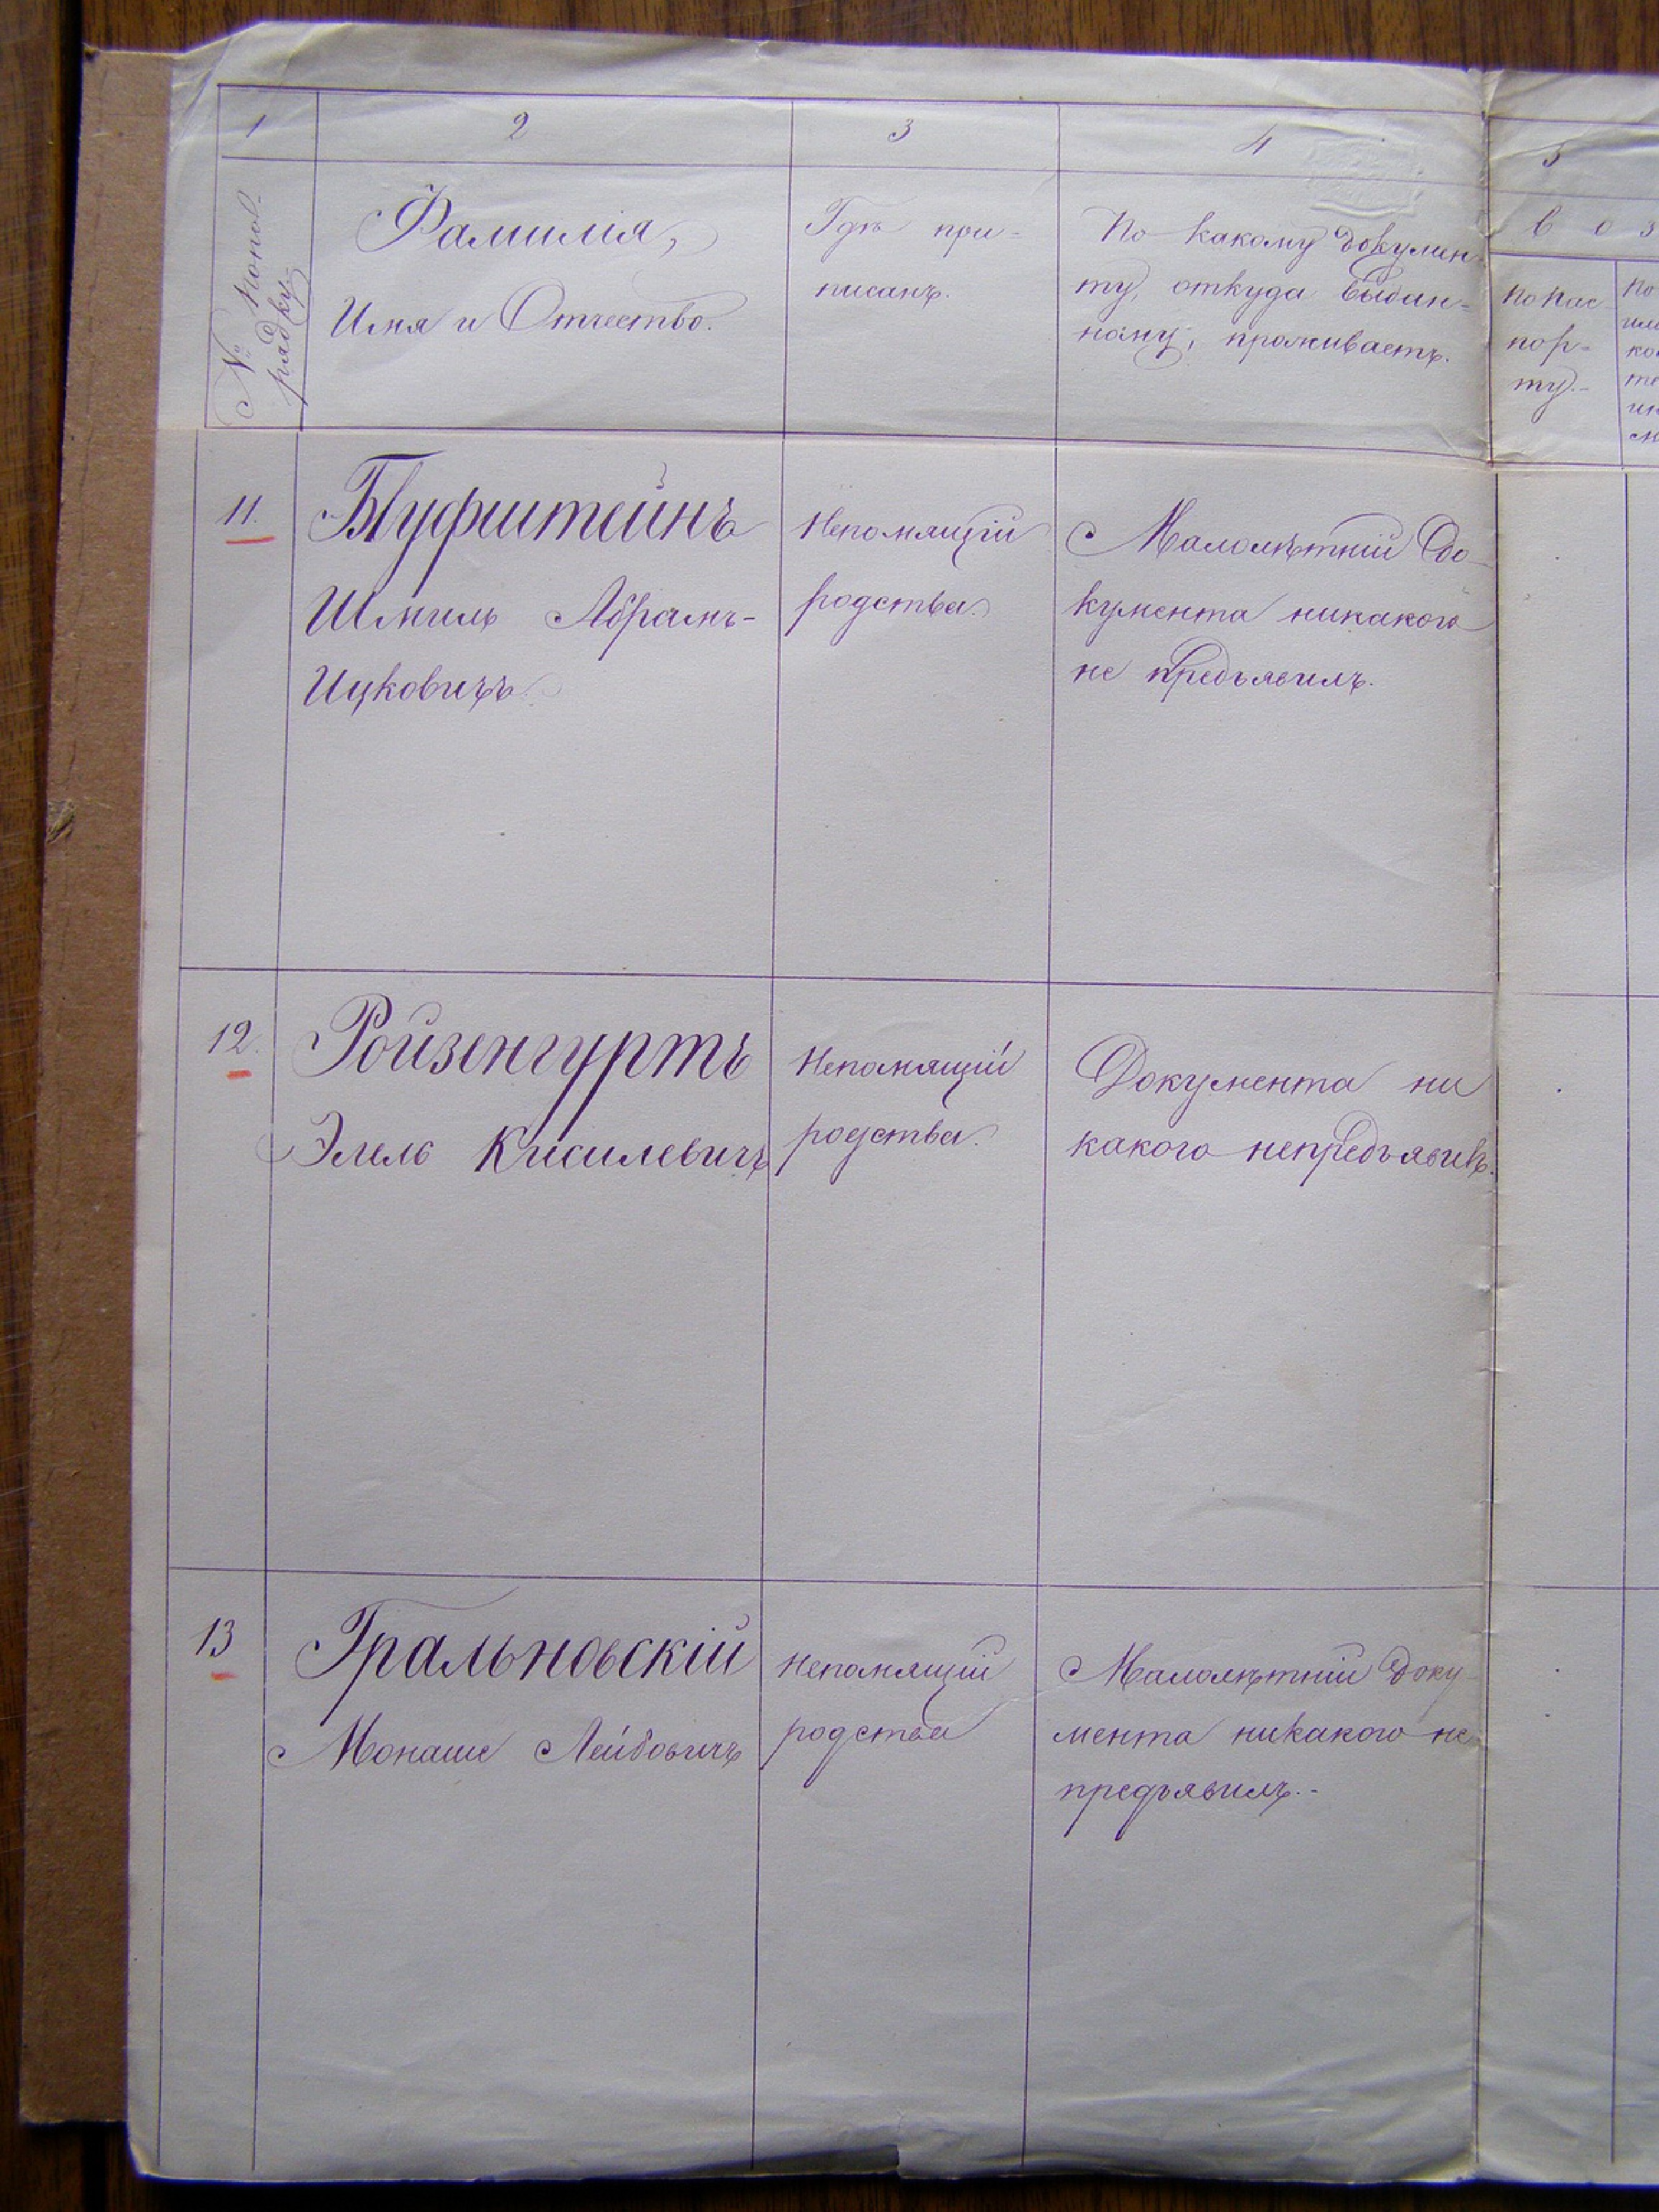 1
2
3
4
5
№ по пор-
рядку.
Фамилія,
Имя и Отчество.
Гдѣ при-
писанъ.
По какому докумен-
ту, откуда выдан-
ному, проживаетъ.
в о з
по пас-
пор-
ту.-
По
ко
11.
Шмиль Абрамъ-
Ицковичъ.
Непомнящій
родства.
Малолѣтній до-
кумента никакого
не предъявилъ.
12.
Ройзенгуртъ
Элель Кисилевичъ
Непомнящій
родства.
Документа ни
какого непредъявилъ.
13
Гральновскій
Монаше Лейбовичъ
Непомнящій
родства
Малолѣтній доку-
мента никакого не
предъявилъ.-